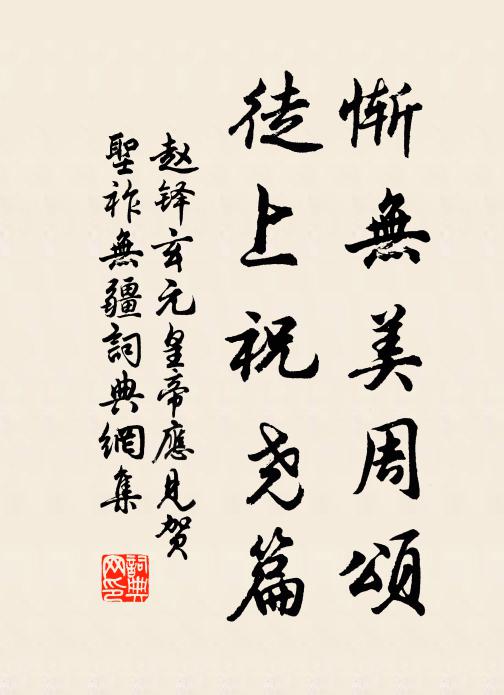 慚無美周頌
徒上祝尧篇
赵铎玄元皇帝應見賀
聖祚無疆詞典網集
詞典
网印